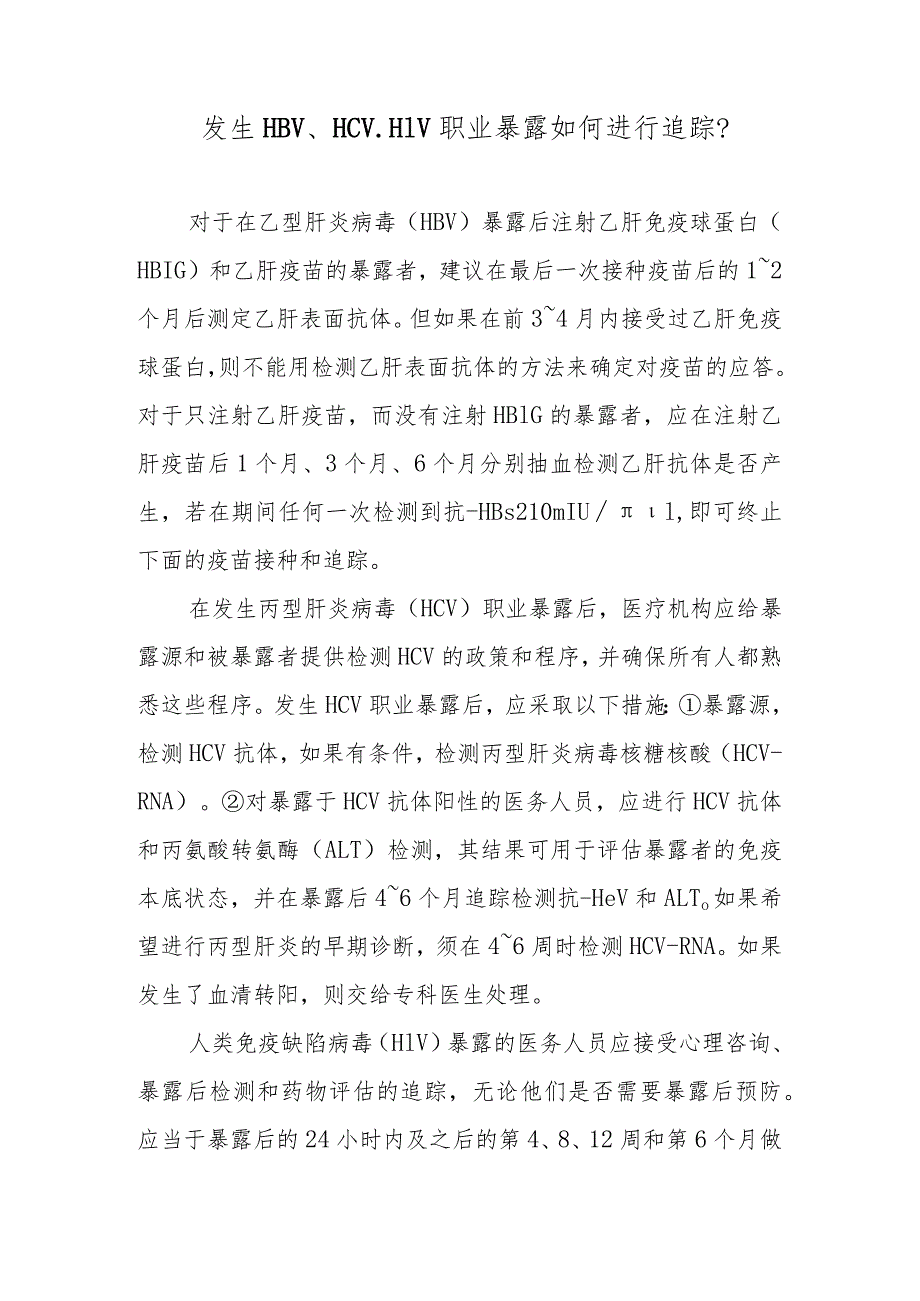 发生HBV、HCV.HlV职业暴露如何进行追踪?
对于在乙型肝炎病毒（HBV）暴露后注射乙肝免疫球蛋白（
HBIG）和乙肝疫苗的暴露者，建议在最后一次接种疫苗后的1~2
个月后测定乙肝表面抗体。但如果在前3~4月内接受过乙肝免疫
球蛋白,则不能用检测乙肝表面抗体的方法来确定对疫苗的应答。
对于只注射乙肝疫苗，而没有注射HBlG的暴露者，应在注射乙
肝疫苗后1个月、3个月、6个月分别抽血检测乙肝抗体是否产
生，若在期间任何一次检测到抗-HBs210mIU／πιl,即可终止
下面的疫苗接种和追踪。
在发生丙型肝炎病毒（HCV）职业暴露后，医疗机构应给暴
露源和被暴露者提供检测HCV的政策和程序，并确保所有人都熟
悉这些程序。发生HCV职业暴露后，应采取以下措施：①暴露源，
检测HCV抗体，如果有条件，检测丙型肝炎病毒核糖核酸（HCV-
RNA）。②对暴露于HCV抗体阳性的医务人员，应进行HCV抗体
和丙氨酸转氨酶（ALT）检测，其结果可用于评估暴露者的免疫
本底状态，并在暴露后4~6个月追踪检测抗-HeV和ALTo如果希
望进行丙型肝炎的早期诊断，须在4~6周时检测HCV-RNA。如果
发生了血清转阳，则交给专科医生处理。
人类免疫缺陷病毒（HlV）暴露的医务人员应接受心理咨询、
暴露后检测和药物评估的追踪，无论他们是否需要暴露后预防。
应当于暴露后的24小时内及之后的第4、8、12周和第6个月做